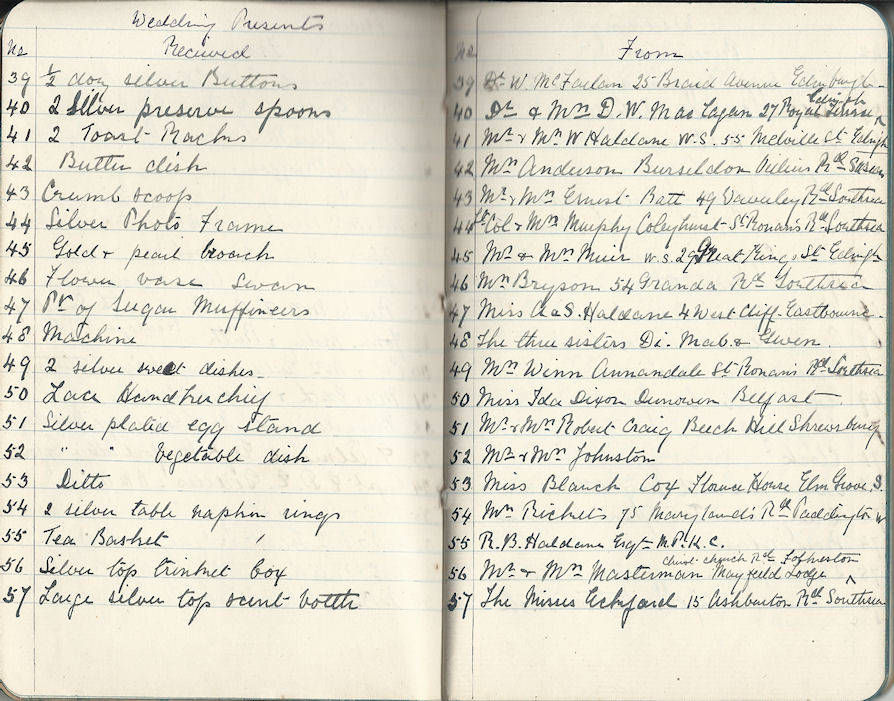 Wedding Presents
Received
No
39 ½ doz silver Buttons
40 2 Silver preserve spoons
41 2 Toast Racks
42 Butter dish
43 Crumb scoop
44 Silver Photo Frame
45 Gold & pearl broach
46 Flower vase Swan
47 Pr of Sugar Muffineers
48 Machine
49 2 silver sweet dishes
50 Lace Handkerchief
51 Silver plated egg stand
52 " " Vegetable dish
53 Ditto
54 2 silver table napkin rings
55 Tea Basket
56 Silver top trinket box
57 Large silver top scent bottle
No From
39 Dr W. McFarlan 25 Braid Avenue Edinburgh
40 Dr & Mrs D. W. MacLagan 27 Royal Terrace Edingh
41 Mr & Mrs W Haldane W.S. 55 Melville St Edingh
42 Mrs Anderson Burseldon Villiers Rd Southsea
43 Mr & Mrs Ernest Batt 49 Waverley Rd Southsea
44 Lt Col & Mrs Murphy Coleyhurst St Ronans Rd Southsea
45 Mr & Mrs Muir W.S. 29 Great King St Edingh
46 Mrs Bryson 54 Granada Rd Southsea
47 Miss & S. Haldane 4 West Cliff Eastbourne
48 The three sisters Di. Mab. & Gwen.
49 Mrs Winn Annandale St Ronans Rd Southsea
50 Miss Ida Dixon Dunowen Belfast
51 Mr & Mrs Robert Craig Beech Hill Shrewsbury
52 Mr & Mrs Johnston
53 Miss Blanch Cox Florence House Elm Grove S.
54 Mrs Rickets 75 Marylands Rd Paddington W
55 R. B. Haldane Esqr M.P. K.C.
56 Mr & Mrs Masterman Mayfield Lodge Christ Church Rd Folkestone
57 The Misses Eckford 15 Ashburton Rd Southsea